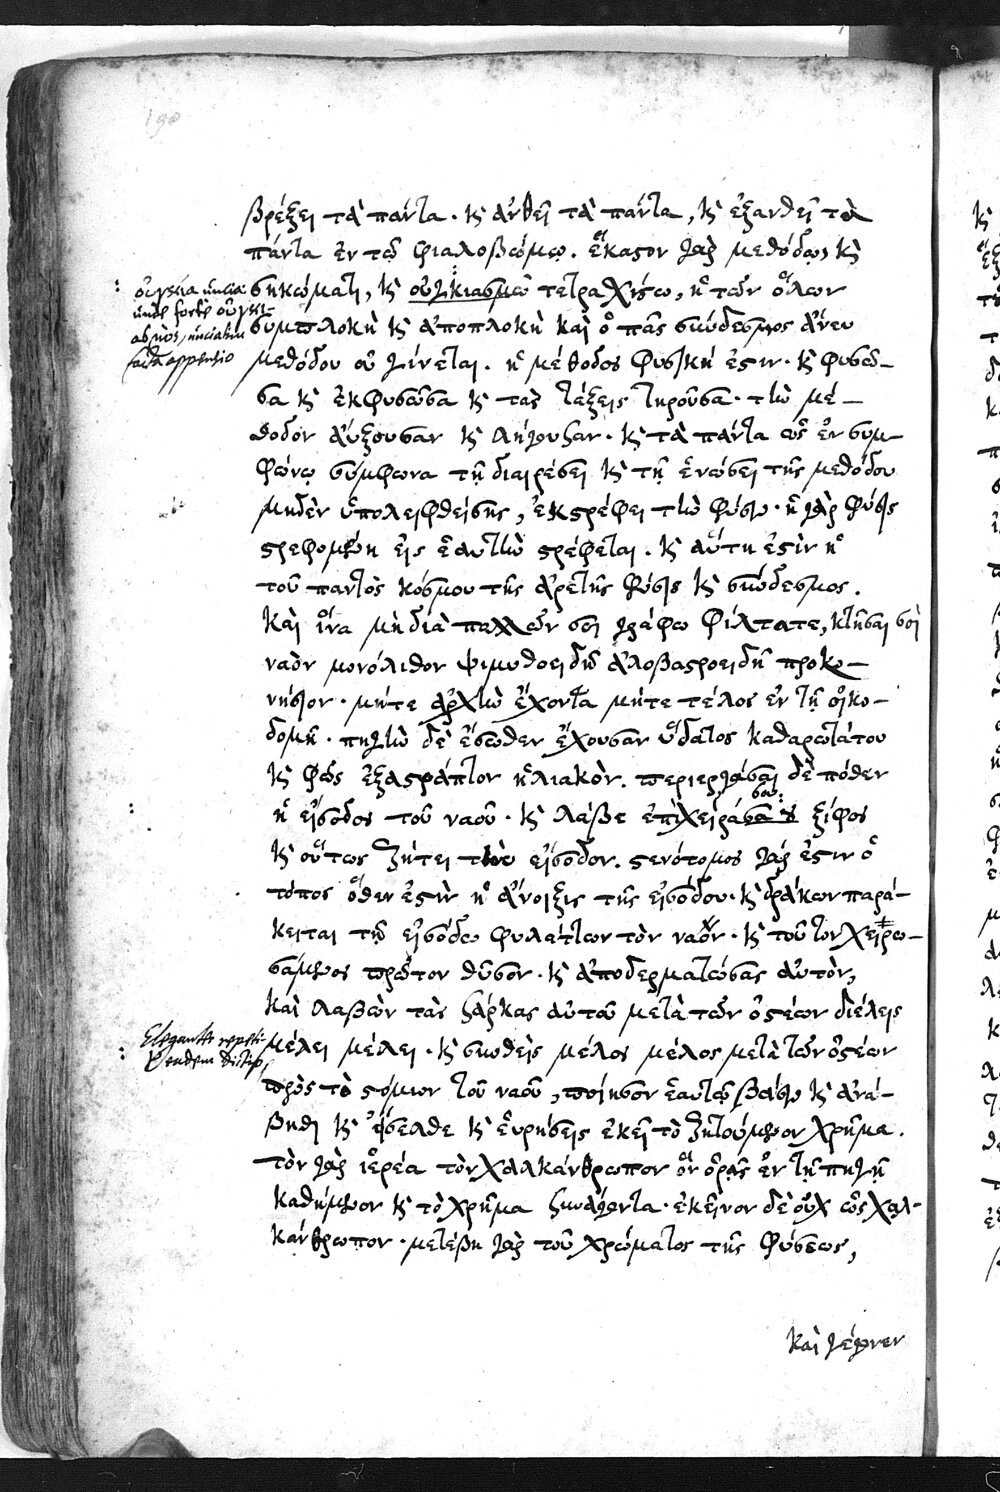 190
βρέξει τὰ πάντα. καὶ ἀνθεῖ τὰ πάντα, καὶ ἐξανθεῖ τὰ
πάντα ἐν τῷ φιαλοβώμῳ. ἕκαστον γὰρ μεθόδῳ καὶ
σηκώματι, καὶ οὐγκιασμῷ τετραχίστῳ, ἡ τῶν ὅλων
συμπλοκὴ καὶ ἀποπλοκὴ καὶ ὁ πᾶς σύνδεσμος ἄνευ
μεθόδου οὐ γίνεται. ἡ μέθοδος φυσική ἐστιν. καὶ φυσῶ-
σα καὶ ἐκφυσῶσα καὶ τὰς τάξεις τηροῦσα. τὴν μέ-
θοδον αὔξουσαν καὶ λήγουσαν. καὶ τὰ πάντα ὡς ἐν συμ-
φώνῳ σύμφωνα τῇ διαιρέσει καὶ τῇ ἑνώσει τῆς μεθόδου
μηδὲν ὑπολειφθείσης, ἐκστρέφει τὴν φύσιν. ἡ γὰρ φύσις
στρεφομένη εἰς ἑαυτὴν στρέφεται. καὶ αὕτη ἐστὶν ἡ
τοῦ παντὸς κόσμου τῆς ἀρετῆς φύσις καὶ σύνδεσμος.
Καὶ ἵνα μὴ διὰ πολλῶν σοι γράφω φίλτατε, κτῆσαι σοὶ
ναὸν μονόλιθον ψιμυθοειδῆ ἀλοβαστροειδῆ προκο-
νήσιον. μήτε ἀρχὴν ἔχοντα μήτε τέλος ἐν τῇ οἰκο-
δομῇ. πηγὴν δὲ ἔσωθεν ἔχουσαν ὕδατος καθαρωτάτου
καὶ φῶς ἐξαστράπτον ἡλιακὸν. περιεργάσαι δὲ πόθεν
ἡ εἴσοδος τοῦ ναοῦ. καὶ λάβε ἐπὶ χεῖρά σου ξίφος
καὶ οὕτως ζήτει τὴν εἴσοδον. στενότομος γάρ ἐστιν ὁ
τόπος ὅθεν ἐστὶν ἡ ἄνοιξις τῆς εἰσόδου. καὶ δράκων παρά-
κειται τῇ εἰσόδῳ φυλάττων τὸν ναόν. καὶ τοῦτον χειρω-
σάμενος πρῶτον θῦσον. καὶ ἀποδερματώσας αὐτὸν,
καὶ λαβὼν τὰς σάρκας αὐτοῦ μετὰ τῶν ὀστέων διέλεις
μέλει μέλει. καὶ συνθεὶς μέλος μέλος μετὰ τῶν ὀστέων
πρὸς τὸ στόμιον τοῦ ναοῦ, ποίησον ἑαυτῷ βάσιν καὶ ἀνά-
βηθι καὶ εἴσελθε καὶ εὑρήσεις ἐκεῖ τὸ ζητούμενον χρῆμα.
τὸν γὰρ ἱερέα τὸν χαλκάνθρωπον ὃν ὁρᾷς ἐν τῇ πηγῇ
καθήμενον καὶ τὸ χρῆμα συνάγοντα. ἐκεῖνον δὲ οὐχ ὡς χαλ-
κάνθρωπον. μετέβη γὰρ τοῦ χρώματος τῆς φύσεως,
καὶ γέγονεν
οὐγκία uncia
unde forte οὐγκι-
ασμὸς, unciarum
facta appensio
Eleganter repeti-